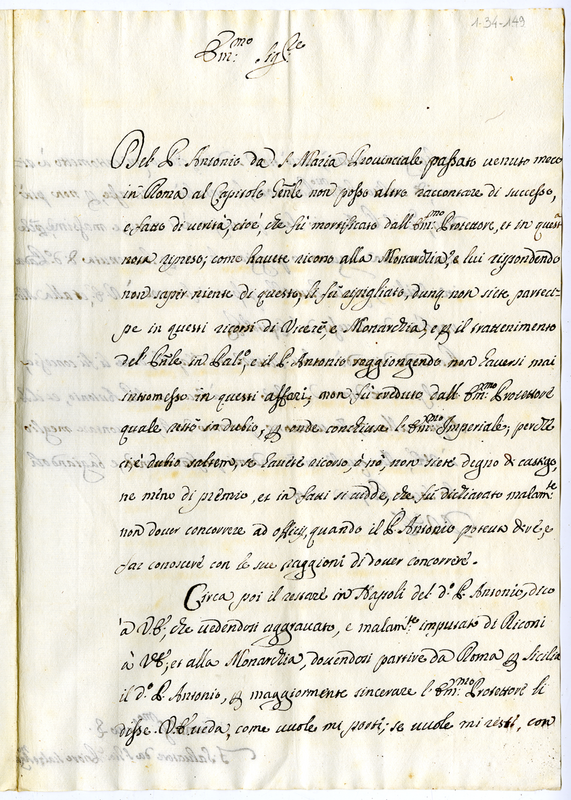 1-34-149
Em:mo Sig:re
Del P. Antonio da S. Maria Provinciale passato venuto meco
in Roma al Capitolo Gñle non posso altro raccontare di successo,
e fatto di verità, cioè, che fù mortificato dall'Em:mo Protettore, et in questa
nota ripreso; come havete ricorso alla Monarchia? e lui rispondendo
non saper niente di questo, li fù ripigliato, dunq. non siete parteci-
pe in questi ricorsi di Vicerè, e Monarchia, e il trattenimento
del Pñle in Pal:o, e il P. Antonio raggiongendo non haversi mai
intromesso in questi affari; non fù creduto dall'Em:mo Protettore
quale restò in dubio, onde conchiuse l'Em:mo Imperiale; perche
ci è dubio saltem, se havete ricorso, ò nò, non siete degno di castigo,
ne meno di premio, et in fatti si vidde, che fù dichiarato malam:te
non dover concorrere ad officij, quando il P. Antonio poteva dire, e
far conoscere con le sue raggioni di dover concorrere.
Circa poi il restare in Napoli del d:o P. Antonio, dico
à V.E., che vedendosi aggravato, e malam:te imputato di Riconi
à V.E., et alla Monarchia, dovendosi partire da Roma Sicilia
il d:o P. Antonio, maggiormente sincerare l'Em:mo Protettore li
disse V.E. veda, come vuole mi porti; se vuole mi resti, con